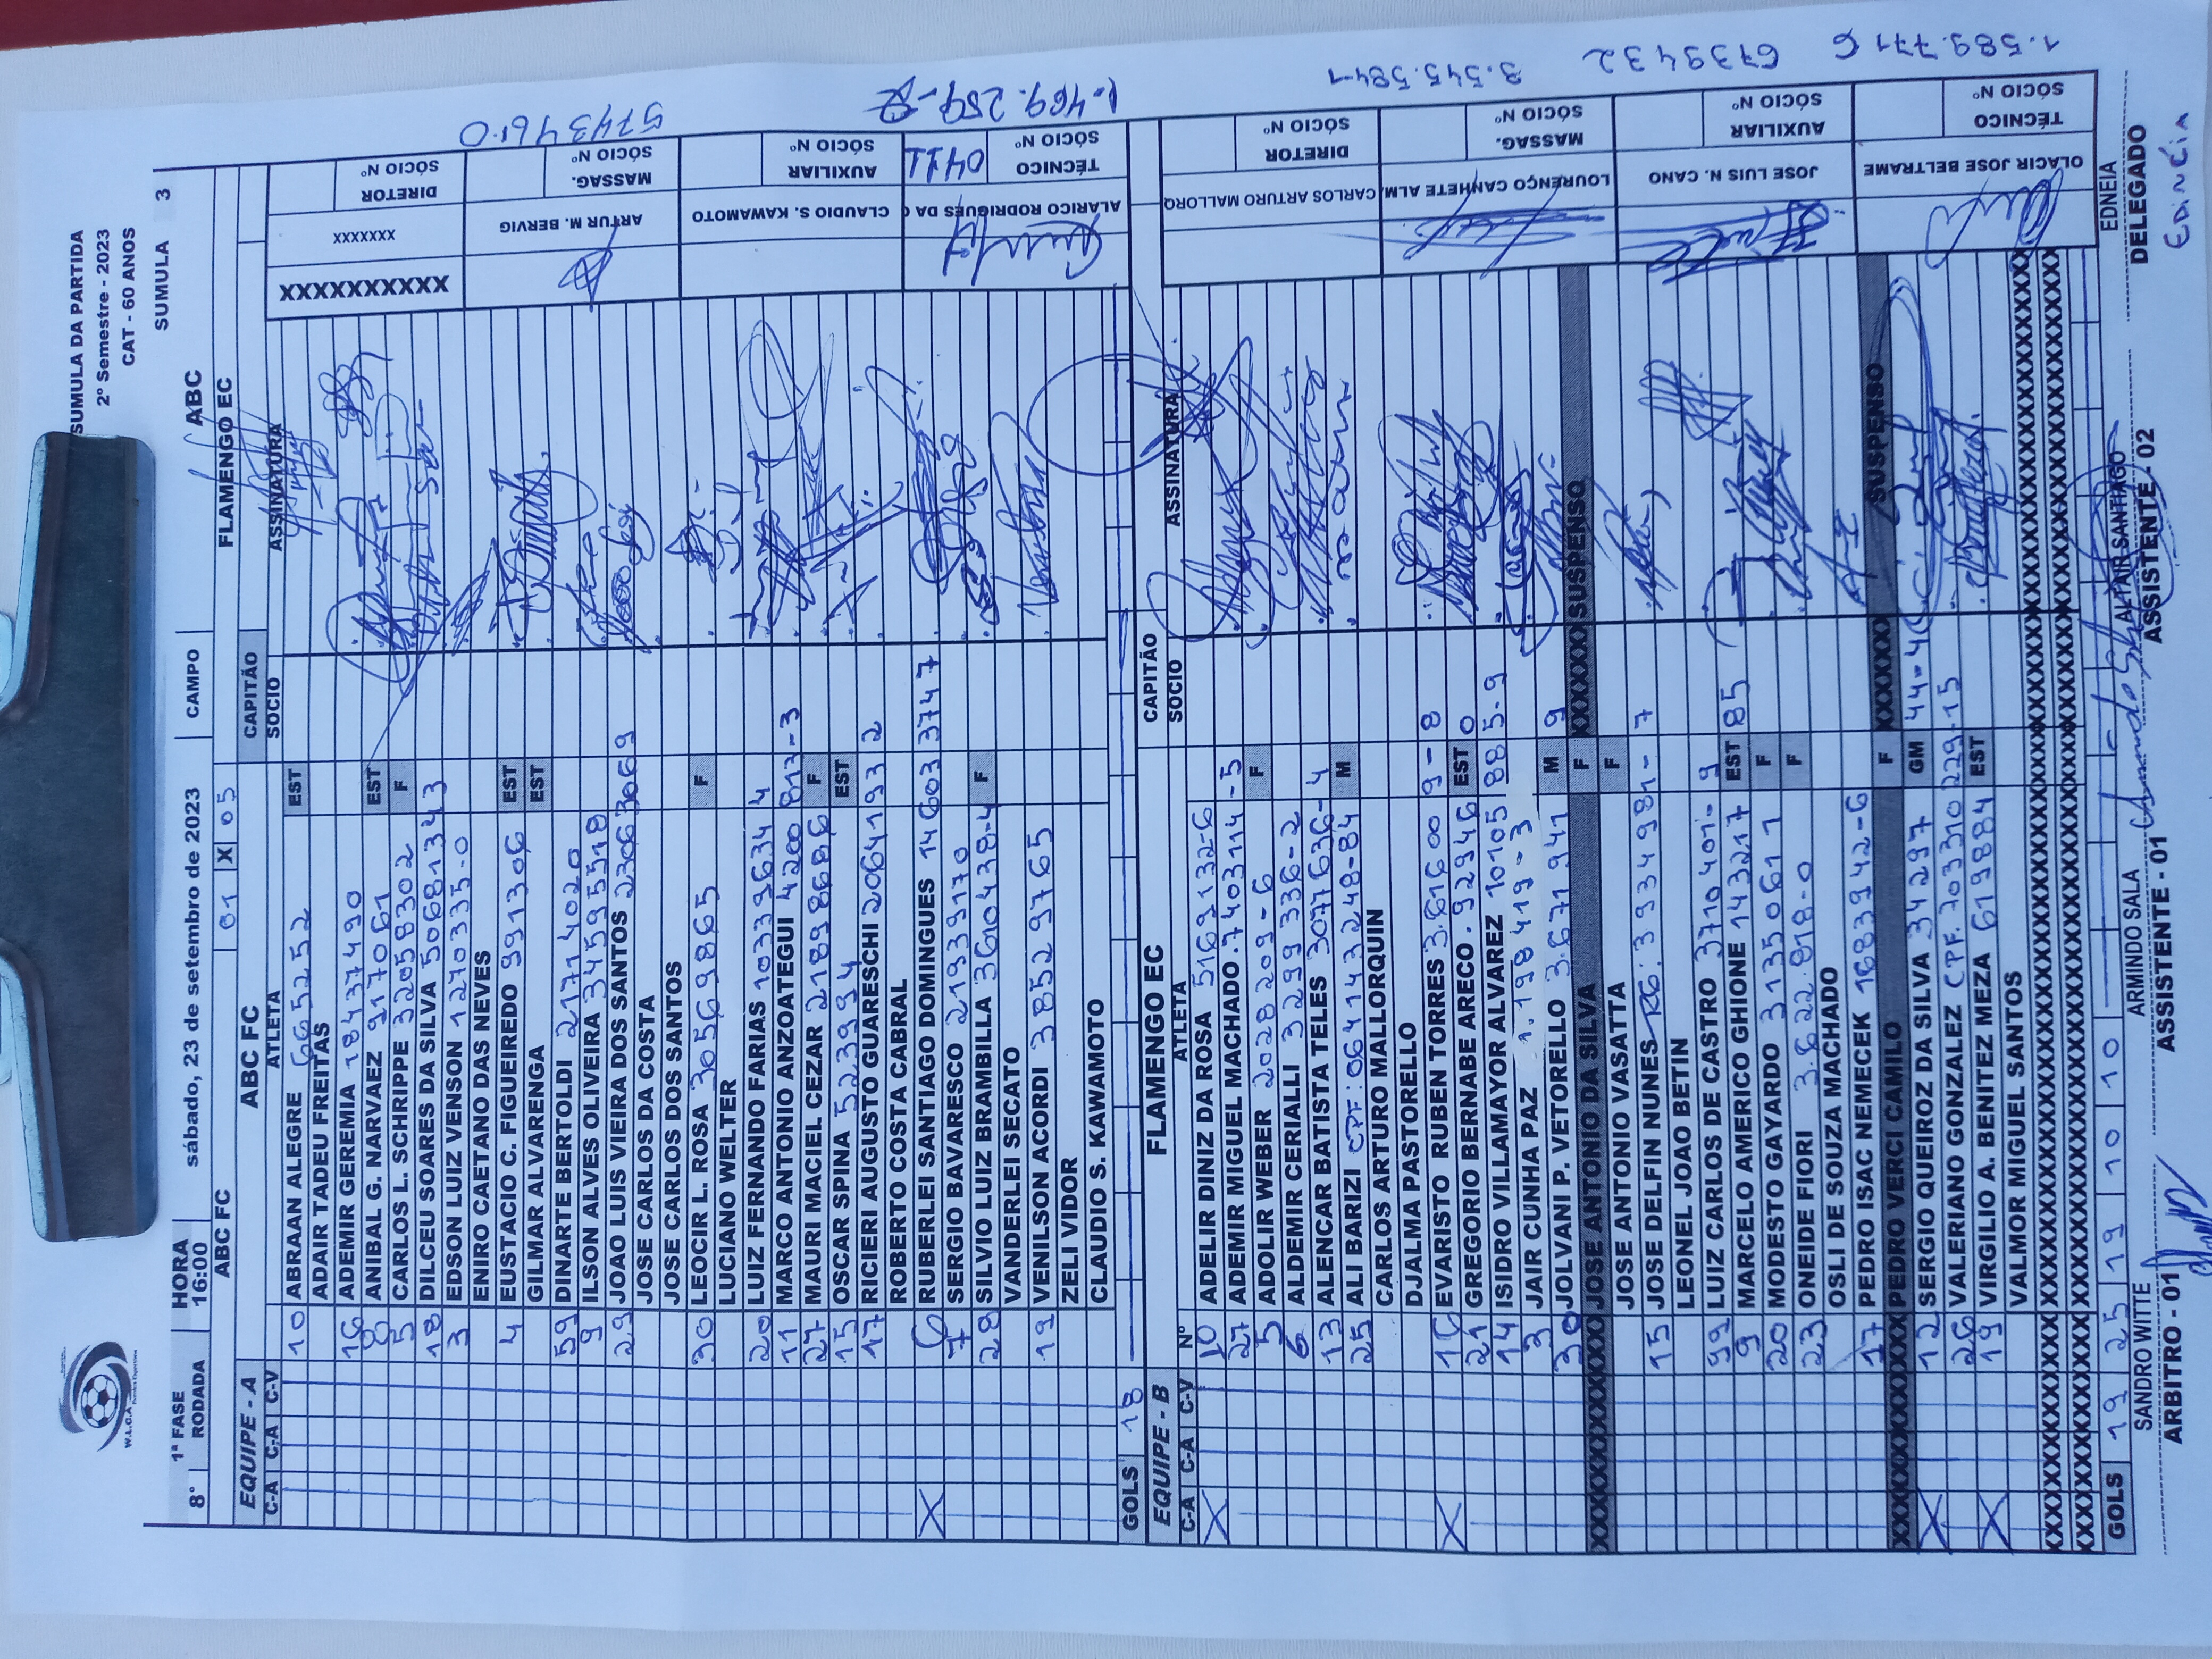 W.L.C.A
SUMULA DA PARTIDA
2º Semestre - 2023
CAT - 60 ANOS
8° 1ª FASE RODADA HORA 16:00 sábado, 23 de setembro de 2023 CAMPO ABC SUMULA 3
ABC FC 01 X 05 FLAMENGO EC
EQUIPE - A ABC FC CAPITÃO
C-A C-A C-V ATLETA SOCIO ASSINATURA
10 ABRAAN ALEGRE 665252 EST
ADAIR TADEU FREITAS
16 ADEMIR GEREMIA 18437490
8 ANIBAL G. NARVAEZ 917061 EST
5 CARLOS L. SCHRIPPE 32058302 F
18 DILCEU SOARES DA SILVA 50681343
3 EDSON LUIZ VENSON 1270335-0
ENIRO CAETANO DAS NEVES
4 EUSTACIO C. FIGUEIREDO 991306 EST
GILMAR ALVARENGA EST
59 DINARTE BERTOLDI 21714020
9 ILSON ALVES OLIVEIRA 34595518
29 JOAO LUIS VIEIRA DOS SANTOS 23063069
JOSE CARLOS DA COSTA
JOSE CARLOS DOS SANTOS
30 LEOCIR L. ROSA 30569865 F
LUCIANO WELTER
20 LUIZ FERNANDO FARIAS 1033396344
11 MARCO ANTONIO ANZOATEGUI 4200813-3
27 MAURI MACIEL CEZAR 21898686 F
15 OSCAR SPINA 523994 EST
17 RICIERI AUGUSTO GUARESCHI 20641932
ROBERTO COSTA CABRAL
X 6 RUBERLEI SANTIAGO DOMINGUES 146033747
7 SERGIO BAVARESCO 21939170
28 SILVIO LUIZ BRAMBILLA 3610438-4 F
VANDERLEI SECATO
19 VENILSON ACORDI 38529765
ZELI VIDOR
CLAUDIO S. KAWAMOTO
GOLS 18
XXXXXXXXXX XXXXXXX DIRETOR SÓCIO Nº
ARTUR M. BERVIG MASSAG. SÓCIO Nº 5743461-0
CLAUDIO S. KAWAMOTO AUXILIAR SÓCIO Nº
ALARICO RODRIGUES DA TÉCNICO SÓCIO Nº 0411
EQUIPE - B FLAMENGO EC CAPITÃO
C-A C-A C-V Nº ATLETA SOCIO ASSINATURA
X 10 ADELIR DINIZ DA ROSA 5169132-6
27 ADEMIR MIGUEL MACHADO .7403114-5
5 ADOLIR WEBER 2028209-6 F
6 ALDEMIR CERIALLI 3299336-2
13 ALENCAR BATISTA TELES 3077636-4
25 ALI BARIZI CPF:064143248-84 M
CARLOS ARTURO MALLORQUIN
DJALMA PASTORELLO
X 16 EVARISTO RUBEN TORRES 3.616009-8
21 GREGORIO BERNABE ARECO .929460 EST
14 ISIDRO VILLAMAYOR ALVAREZ 10105885-9
3 JAIR CUNHA PAZ 1.198419-3
30 JOLVANI P. VETORELLO 3.6719419 M
XXXXXXXXXX JOSE ANTONIO DA SILVA F XXXXXX SUSPENSO
JOSE ANTONIO VASATTA F
15 JOSE DELFIN NUNES RG:3934981-7
LEONEL JOAO BETIN
99 LUIZ CARLOS DE CASTRO 3710401-9
9 MARCELO AMERICO GHIONE 14321785 EST
20 MODESTO GAYARDO 31350611 F
23 ONEIDE FIORI 3.622.818-0 F
OSLI DE SOUZA MACHADO
17 PEDRO ISAC NEMECEK 1683942-6
XXXXXXXXXX PEDRO VERCI CAMILO F XXXXXX SUSPENSO
X 12 SERGIO QUEIROZ DA SILVA 34297 GM
26 VALERIANO GONZALEZ CPF.203310229-15
X 19 VIRGILIO A. BENITEZ MEZA 619884 EST
VALMOR MIGUEL SANTOS
GOLS 19 25 19 10 10
CARLOS ARTURO MALLORQ DIRETOR SÓCIO Nº
LOURENÇO CANHETE ALM MASSAG. SÓCIO Nº 3.545.584-1
JOSE LUIS N. CANO AUXILIAR SÓCIO Nº 6739432
OLACIR JOSE BELTRAME TÉCNICO SÓCIO Nº 1.589.771 6
SANDRO WITTE ARMINDO SALA ALTAIR SANTIAGO EDNEIA
ARBITRO - 01 ASSISTENTE - 01 ASSISTENTE - 02 DELEGADO